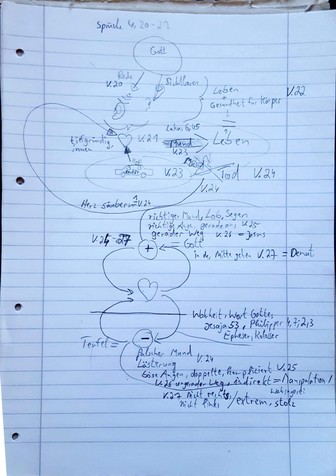 Sprüche 4, 20-27
Gott
Rede
V.20
Leben
V.22
=
Gesundheit für Körper
tiefgründig,
innen
V.21
Lukas 6,45
Mund
V.23
Leben
V.23
Tod V.24
V.24
Herz säubern V.24
richtiger Mund, Lob, Segen
richtige Augen, geradeaus V.25
gerader Weg V.26 = Jesus
V.24-27
+
= Gott
in der Mitte gehen V.27 = Demut
Wahrheit, Wort Gottes,
Jesaja 53, Philipper 4,7; 2,3
Epheser, Kolosser
Teufel =
-
falscher Mund V.24
Lästerung
böse Augen, doppelte, kompliziert V.25
V.26 ungerader Weg, indirekt = Manipulation /
V.27 Nicht rechts,
nicht links / extrem, stolz